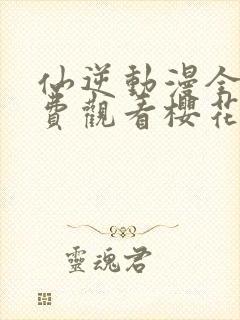 仙逆動漫全
費觀看櫻花
靈魂君